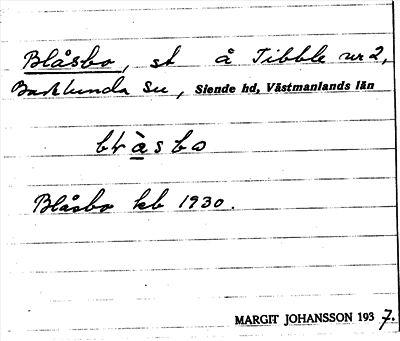 Blåsbo, st å Tibble nr 2,
Barklunda Sn, Siende hd, Västmanlands län
blàsbo
Blåsbo kb 1930.
MARGIT JOHANSSON 1937.